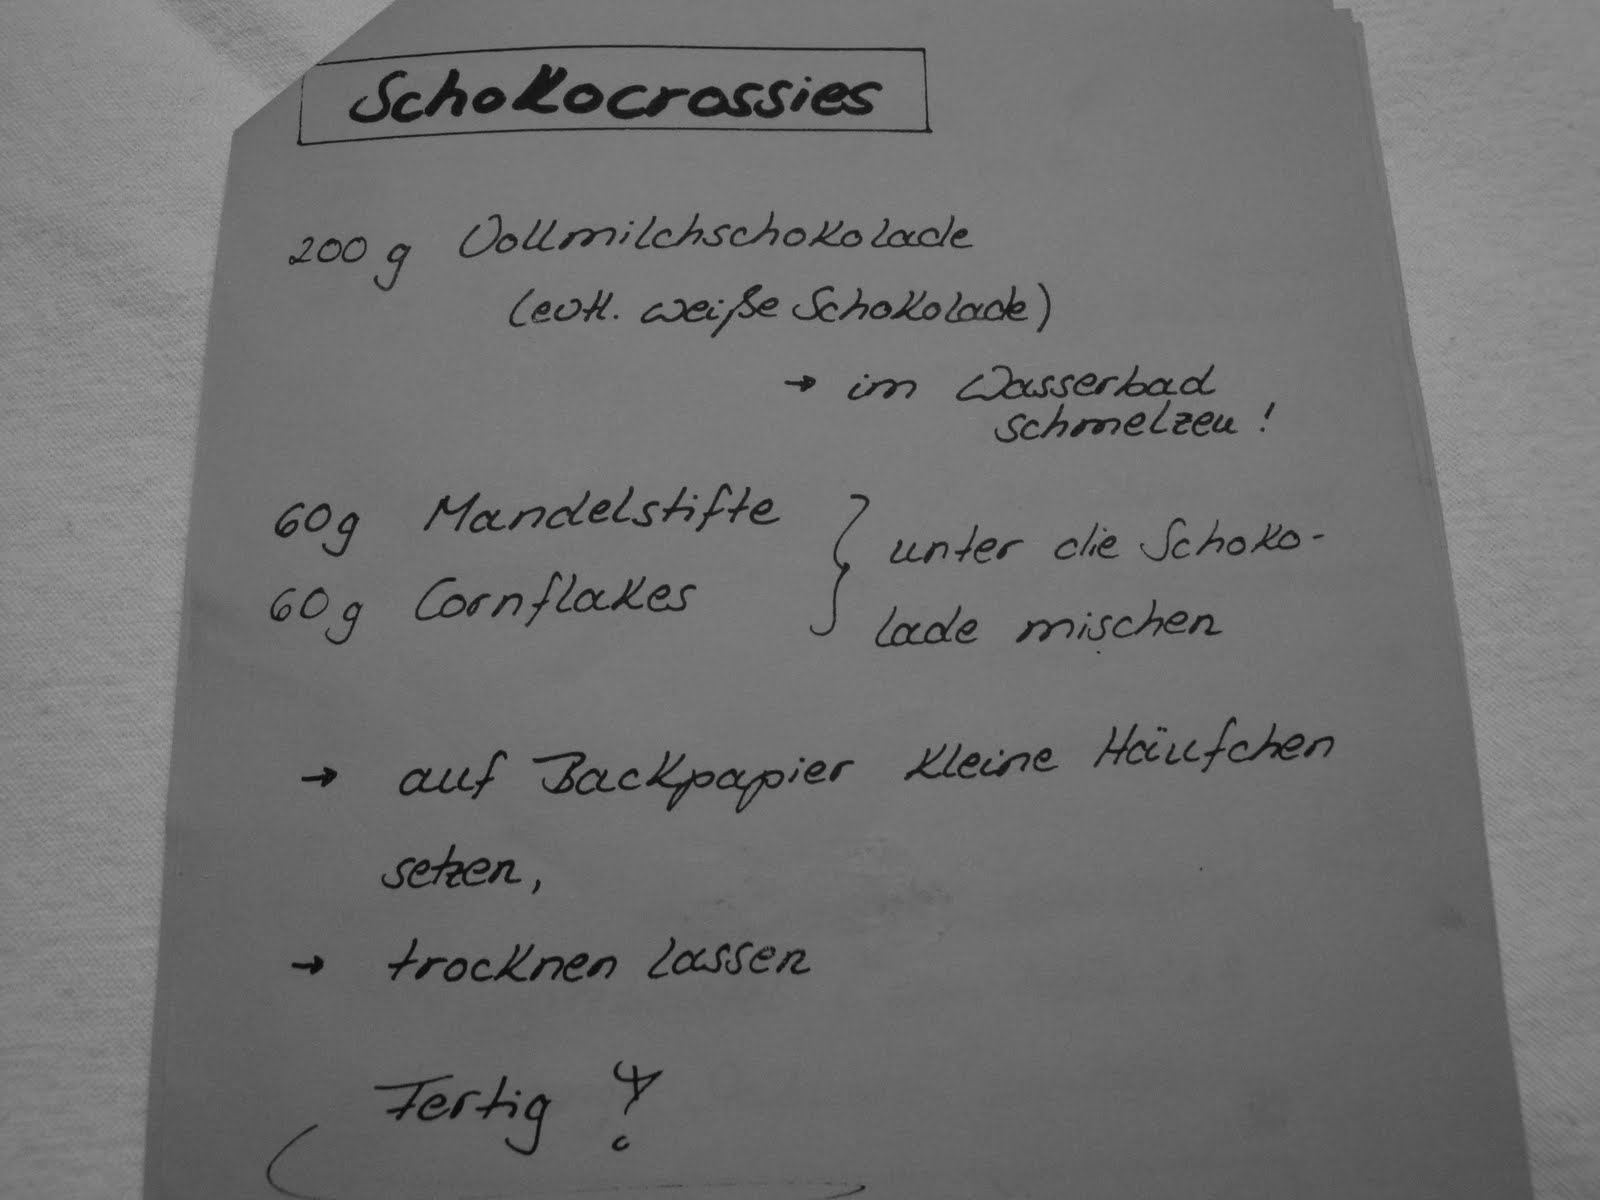 Schokocrossies
200 g Vollmilchschokolade
(evtl. weiße Schokolade)
→ im Wasserbad
schmelzen!
60g Mandelstifte } unter die Schoko-
60g Cornflakes } lade mischen
→ auf Backpapier kleine Häufchen
setzen,
→ trocknen lassen
Fertig !